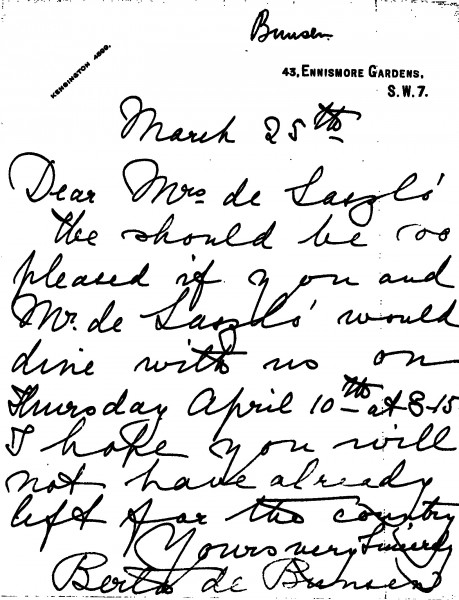 Bunsen
KENSINGTON 4000.
43, ENNISMORE GARDENS,
S.W.7.
March 25th
Dear Mrs de Laszló
We should be so
pleased if you and
Mr. de Laszló would
dine with us on
Thursday April 10th at 8-15
I hope you will
not have already
left for the country
Yours very Sincerely
Berta de Bunsen